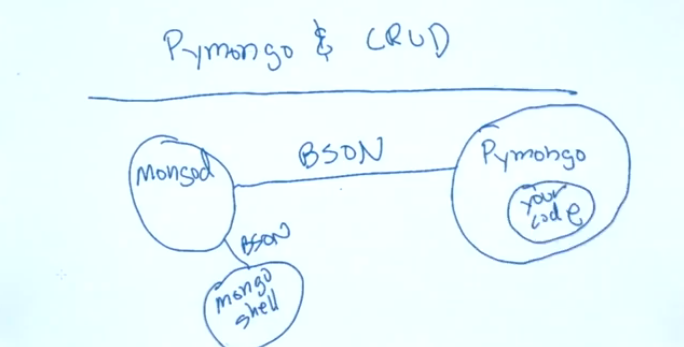 Pymongo & CRUD
BSON
Mongod
Pymongo
your
code
BSON
mongo
shell